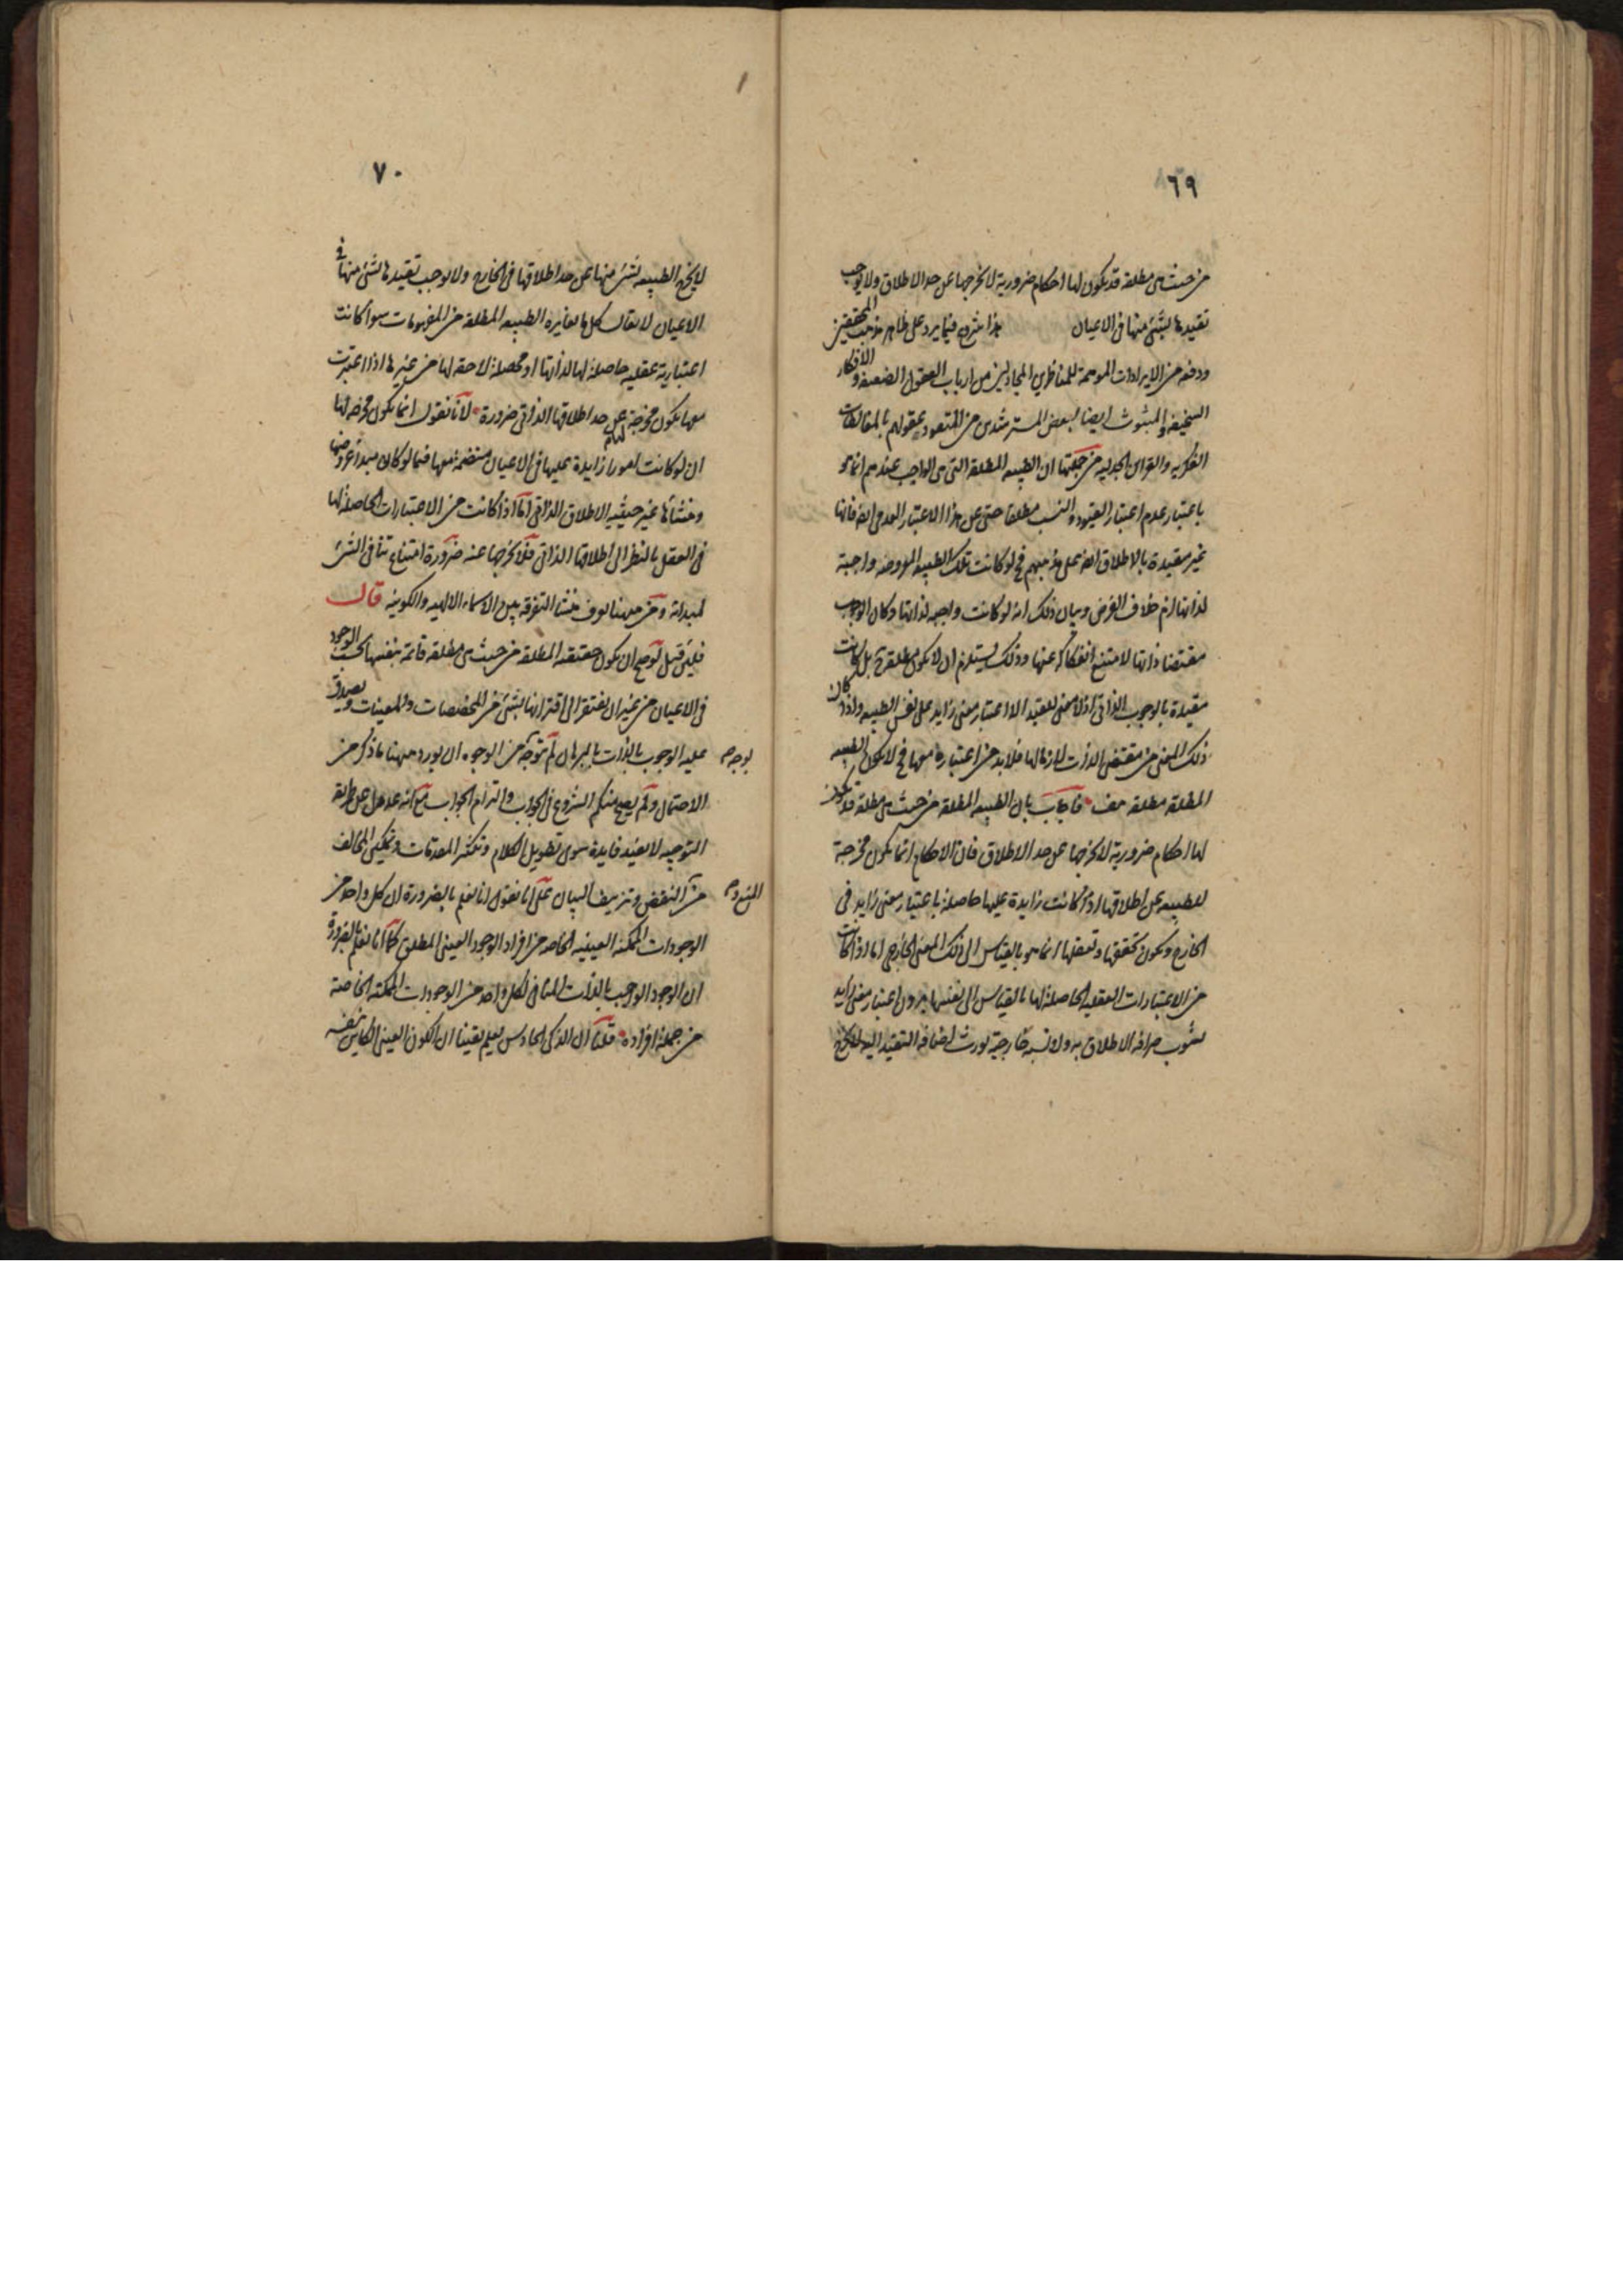 ٦٩
من حيث هى مطلقة قد يكون لها احكام ضرورية لا تخرجها عن حد الاطلاق ولا يوجب
تقيدها بشئ منها فى الاعيان هذا شروع فيما يرد على ظاهر مذهب المحققين
ودفعه من الايرادات الموهمة للمناظرين المجادلين من ارباب العقول الضعيفة والافكار
السخيفة والمشوش ايضا لبعض المسترشدين من المتعود عقولهم بالمغالطات
الفكريه والقوانين الجدليه من جملتها ان الطبيعه المطلقة التى هى الواجب عندهم انما هو
باعتبار عدم اعتبار القيود والنسب مطلقا حتى عن هذا الاعتبار العدمى ايضا فانها
غير مقيدة بالاطلاق ايضا على مذهبهم فح لو كانت تلك الطبيعه المعروضه واجبة
لذاتها لزم خلاف الفرض وبيان ذلك انه لو كانت واجبه لذاتها وكان الوجوب
مقتضا ذاتها لامتنع انفكاكه عنها وذلك يستلزم ان لا يكون مطلقة بل كانت
مقيدة بالوجوب الذاتى اذ لا معنى للتقيد الا اعتبار معنى زايد على نفس الطبيعه واذ كان
ذلك المعنى من مقتضى الذات لازما لها فلا بد من اعتباره معها فح لا يكون الطبيعه
المطلقة مطلقة هف فاجاب بان الطبيعه المطلقة من حيث هى مطلقة قد يكون
لها احكام ضرورية لا تخرجها عن حد الاطلاق فان الاحكام انما يكون مخرجة
للطبيعه عن اطلاقها اذا كانت زايدة عليها حاصلة باعتبار معنى زايد فى
الخارج ويكون تحققها وتعقلها انما هو بالقياس الى ذلك المعنى الخارجى اما اذا كانت
من الاعتبارات العقليه الحاصلة لها بالقياس الى نفسها بدون اعتبار معنى زايد
يشوب صرافة الاطلاق به ولا نسبة خارجية يورث اضافة التقيد اليه فلا يخرج
٧٠
لا يخرج الطبيعه بشئ منها عن حد اطلاقها فى الخارج ولا يوجب تقيدها بشئ منها فى
الاعيان لا يقال كل ما يغايره الطبيعه المطلقة من المفهومات سوا كانت
اعتبارية عقليه حاصلة لها لذاتها او محصلة لاحقه لها من غيرها اذا اعتبرت
معها يكون مخرجة لها عن حد اطلاقها الذاتى ضرورة لانا نقول انما يكون مخرجة لها
ان لو كانت امورا زايدة عليها فى الاعيان منضمة معها فيما لو كان مبدأ عروضها
ومنشأها غير حيثيه الاطلاق الذاتى اما اذا كانت من الاعتبارات الحاصلة لها
فى العقل بالنظر الى اطلاقها الذاتى فلا تخرجها عنه ضرورة امتناع تنافى الشئ
لمبدائه ومن ههنا يعرف منشأ التفرقة بين الاسماء الالهيه والكونيه قال
فلئن قيل لو صح ان يكون حقيقته المطلقة من حيث هى مطلقة قائمة بنفسها بحسب الوجود
فى الاعيان من غير ان يفتقر الى اقترانها بشئ من المخصصات والمعينات ويصدق
عليه الوجوب بالذات بالبرهان لم يتوجه من الوجوه ان يورد ههنا ما ذكر من
بوجه
الاحتمال ولم يصح منكم الشروع فى الجواب والتزام الجواب مع كونه عدول عن طريق
التوجيه لا يفيد فايدة سوى تطويل الكلام وتكثير المقدمات وتمكين المخالف
من النقض وتزييف البيان على انا نقول انا نعلم بالضرورة ان كل واحد من
الوجودات الممكنة العينيه الخاصه من افراد الوجود العينى المطلق كما انا نعلم بالضرورة
ان الوجود الواجب بالذات المنافى لكل واحد من الوجودات الممكنة الخاصة
من جملة افراده قلنا ان الذكى الحادس يعلم يقينا ان الكون العينى الكاين بنفسه